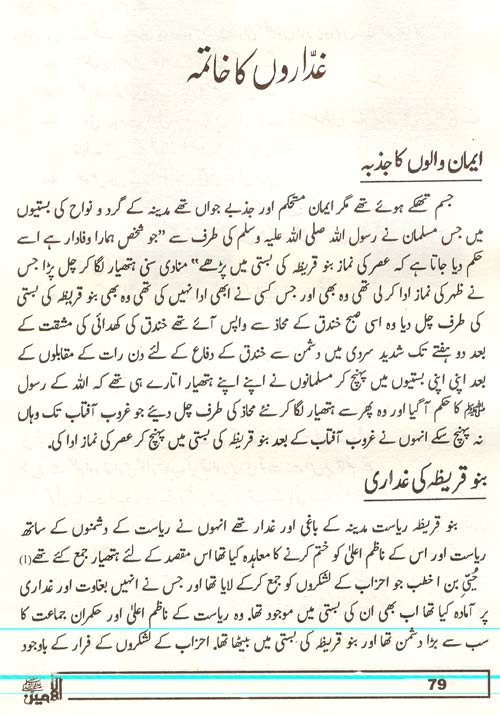 غدّاروں کا خاتمہ
ایمان والوں کا جذبہ
جسم تھکے ہوئے تھے مگر ایمان مستحکم اور جذبے جواں تھے مدینہ کے گرد و نواح کی بستیوں
میں جس مسلمان نے رسول اللہ صلی اللہ علیہ وسلم کی طرف سے ”جو شخص ہمارا وفادار ہے اسے
حکم دیا جاتا ہے کہ عصر کی نماز بنو قریظہ کی بستی میں پڑھے“ منادی سنی ہتھیار لگا کر چل پڑا جس
نے ظہر کی نماز ادا کر لی تھی وہ بھی اور جس کسی نے ابھی ادا نہیں کی تھی وہ بھی بنو قریظہ کی بستی
کی طرف چل دیا وہ اسی صبح خندق کے محاذ سے واپس آئے تھے خندق کی کھدائی کی مشقت کے
بعد دو ہفتے تک شدید سردی میں دشمن سے خندق کے دفاع کے لئے دن رات کے مقابلوں کے
بعد اپنی اپنی بستیوں میں پہنچ کر مسلمانوں نے اپنے اپنے ہتھیار اتارے ہی تھے کہ اللہ کے رسول
ﷺ کا حکم آ گیا اور وہ پھر سے ہتھیار لگا کر نئے محاذ کی طرف چل دیئے جو غروب آفتاب تک وہاں
نہ پہنچ سکے انہوں نے غروب آفتاب کے بعد بنو قریظہ کی بستی میں پہنچ کر عصر کی نماز ادا کی۔
بنو قریظہ کی غداری
بنو قریظہ ریاست مدینہ کے باغی اور غدار تھے انہوں نے ریاست کے دشمنوں کے ساتھ
ریاست اور اس کے ناظم اعلیٰ کو ختم کرنے کا معاہدہ کیا تھا اس مقصد کے لئے ہتھیار جمع کئے تھے (1)
حُیّی بن اخطب جو احزاب کے لشکروں کو جمع کر کے لایا تھا اور جس نے انہیں بغاوت اور غداری
پر آمادہ کیا تھا اب بھی ان کی بستی میں موجود تھا۔ وہ ریاست کے ناظم اعلیٰ اور حکمران جماعت کا
سب سے بڑا دشمن تھا اور بنو قریظہ کی بستی میں بیٹھا تھا۔ احزاب کے لشکروں کے فرار کے باوجود
الامین ﷺ
79